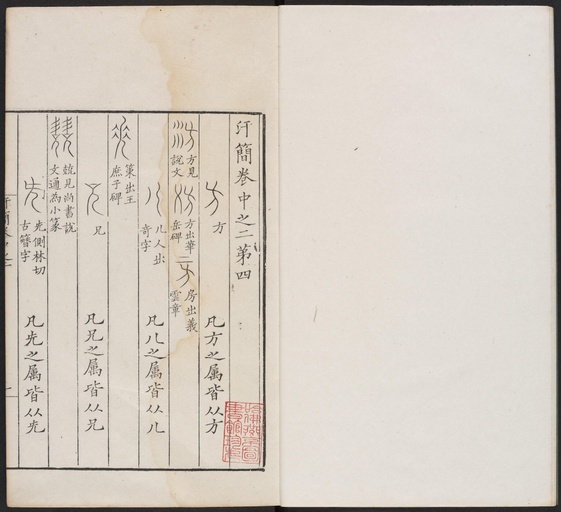 汗簡卷中之二第四
方 凡方之属皆从方
方見說文 方出華岳碑 房出義雲章
儿人出奇字 凡儿之属皆从儿
策出王庶子碑
兄 凡兄之属皆从兄
兢見尚書說文通為小篆
先側林切古簪字 凡先之属皆从先